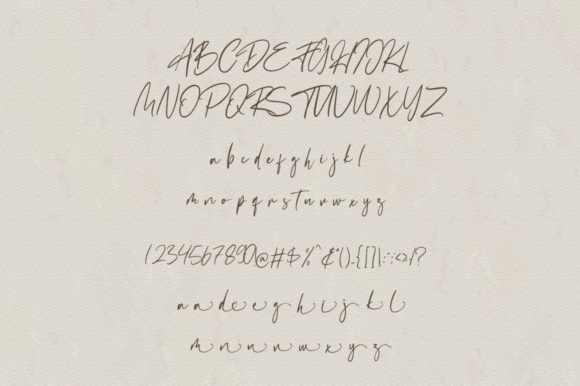 ABCDEFGHIJKL
MNOPQRSTUVWXYZ
a b c d e f g h i j k l
m n o p q r s t u v w x y z
1234567890@#$%^&*()-{[]|:;<>/?
a a d e e g h i j k l